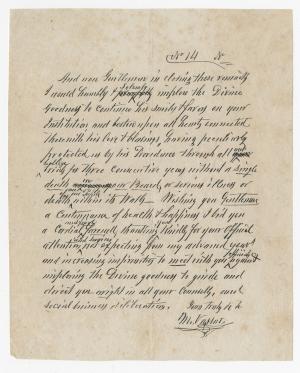 No 14
And now Gentlemen in closing these remarks
I would humbly & solemnly implore the Divine
Goodness to continue his smiles & favors on your
Institution and bestow upon all hearts connected
therewith his love & blessings, having peculiarly
protected us by his Providence through all our
trials for three consecutive years without a single
death in our Board, or serious illness or
death within its walls. Wishing you Gentlemen
a continuance of health & happiness I bid you
a Cordial farewell, thanking kindly for your official
attentions, not expecting from my advanced years
and increasing infirmities to meet with you again
imploring the Divine goodness to guide and
direct you aright in all your Counsels, and
social business deliberations.
Yours truly &c
M. Vassar